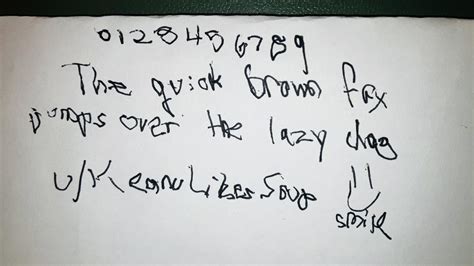 0123456789
The quick brown fox
jumps over the lazy dog
u/KeanuLikesSoup
smile